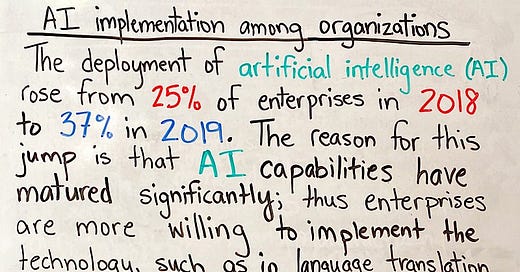 AI implementation among organizations
The deployment of artificial intelligence (AI)
rose from 25% of enterprises in 2018
to 37% in 2019. The reason for this
jump is that AI capabilities have
matured significantly; thus enterprises
are more willing to implement the
technology, such as in language translation